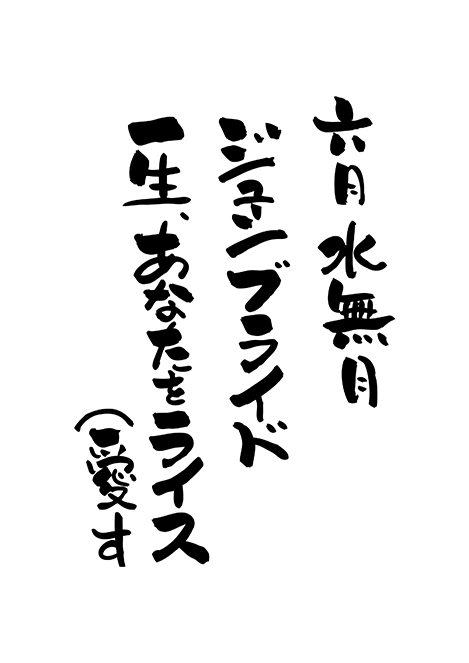 六月 水無月
ジューンブライド
一生、あなたをライス
(愛す